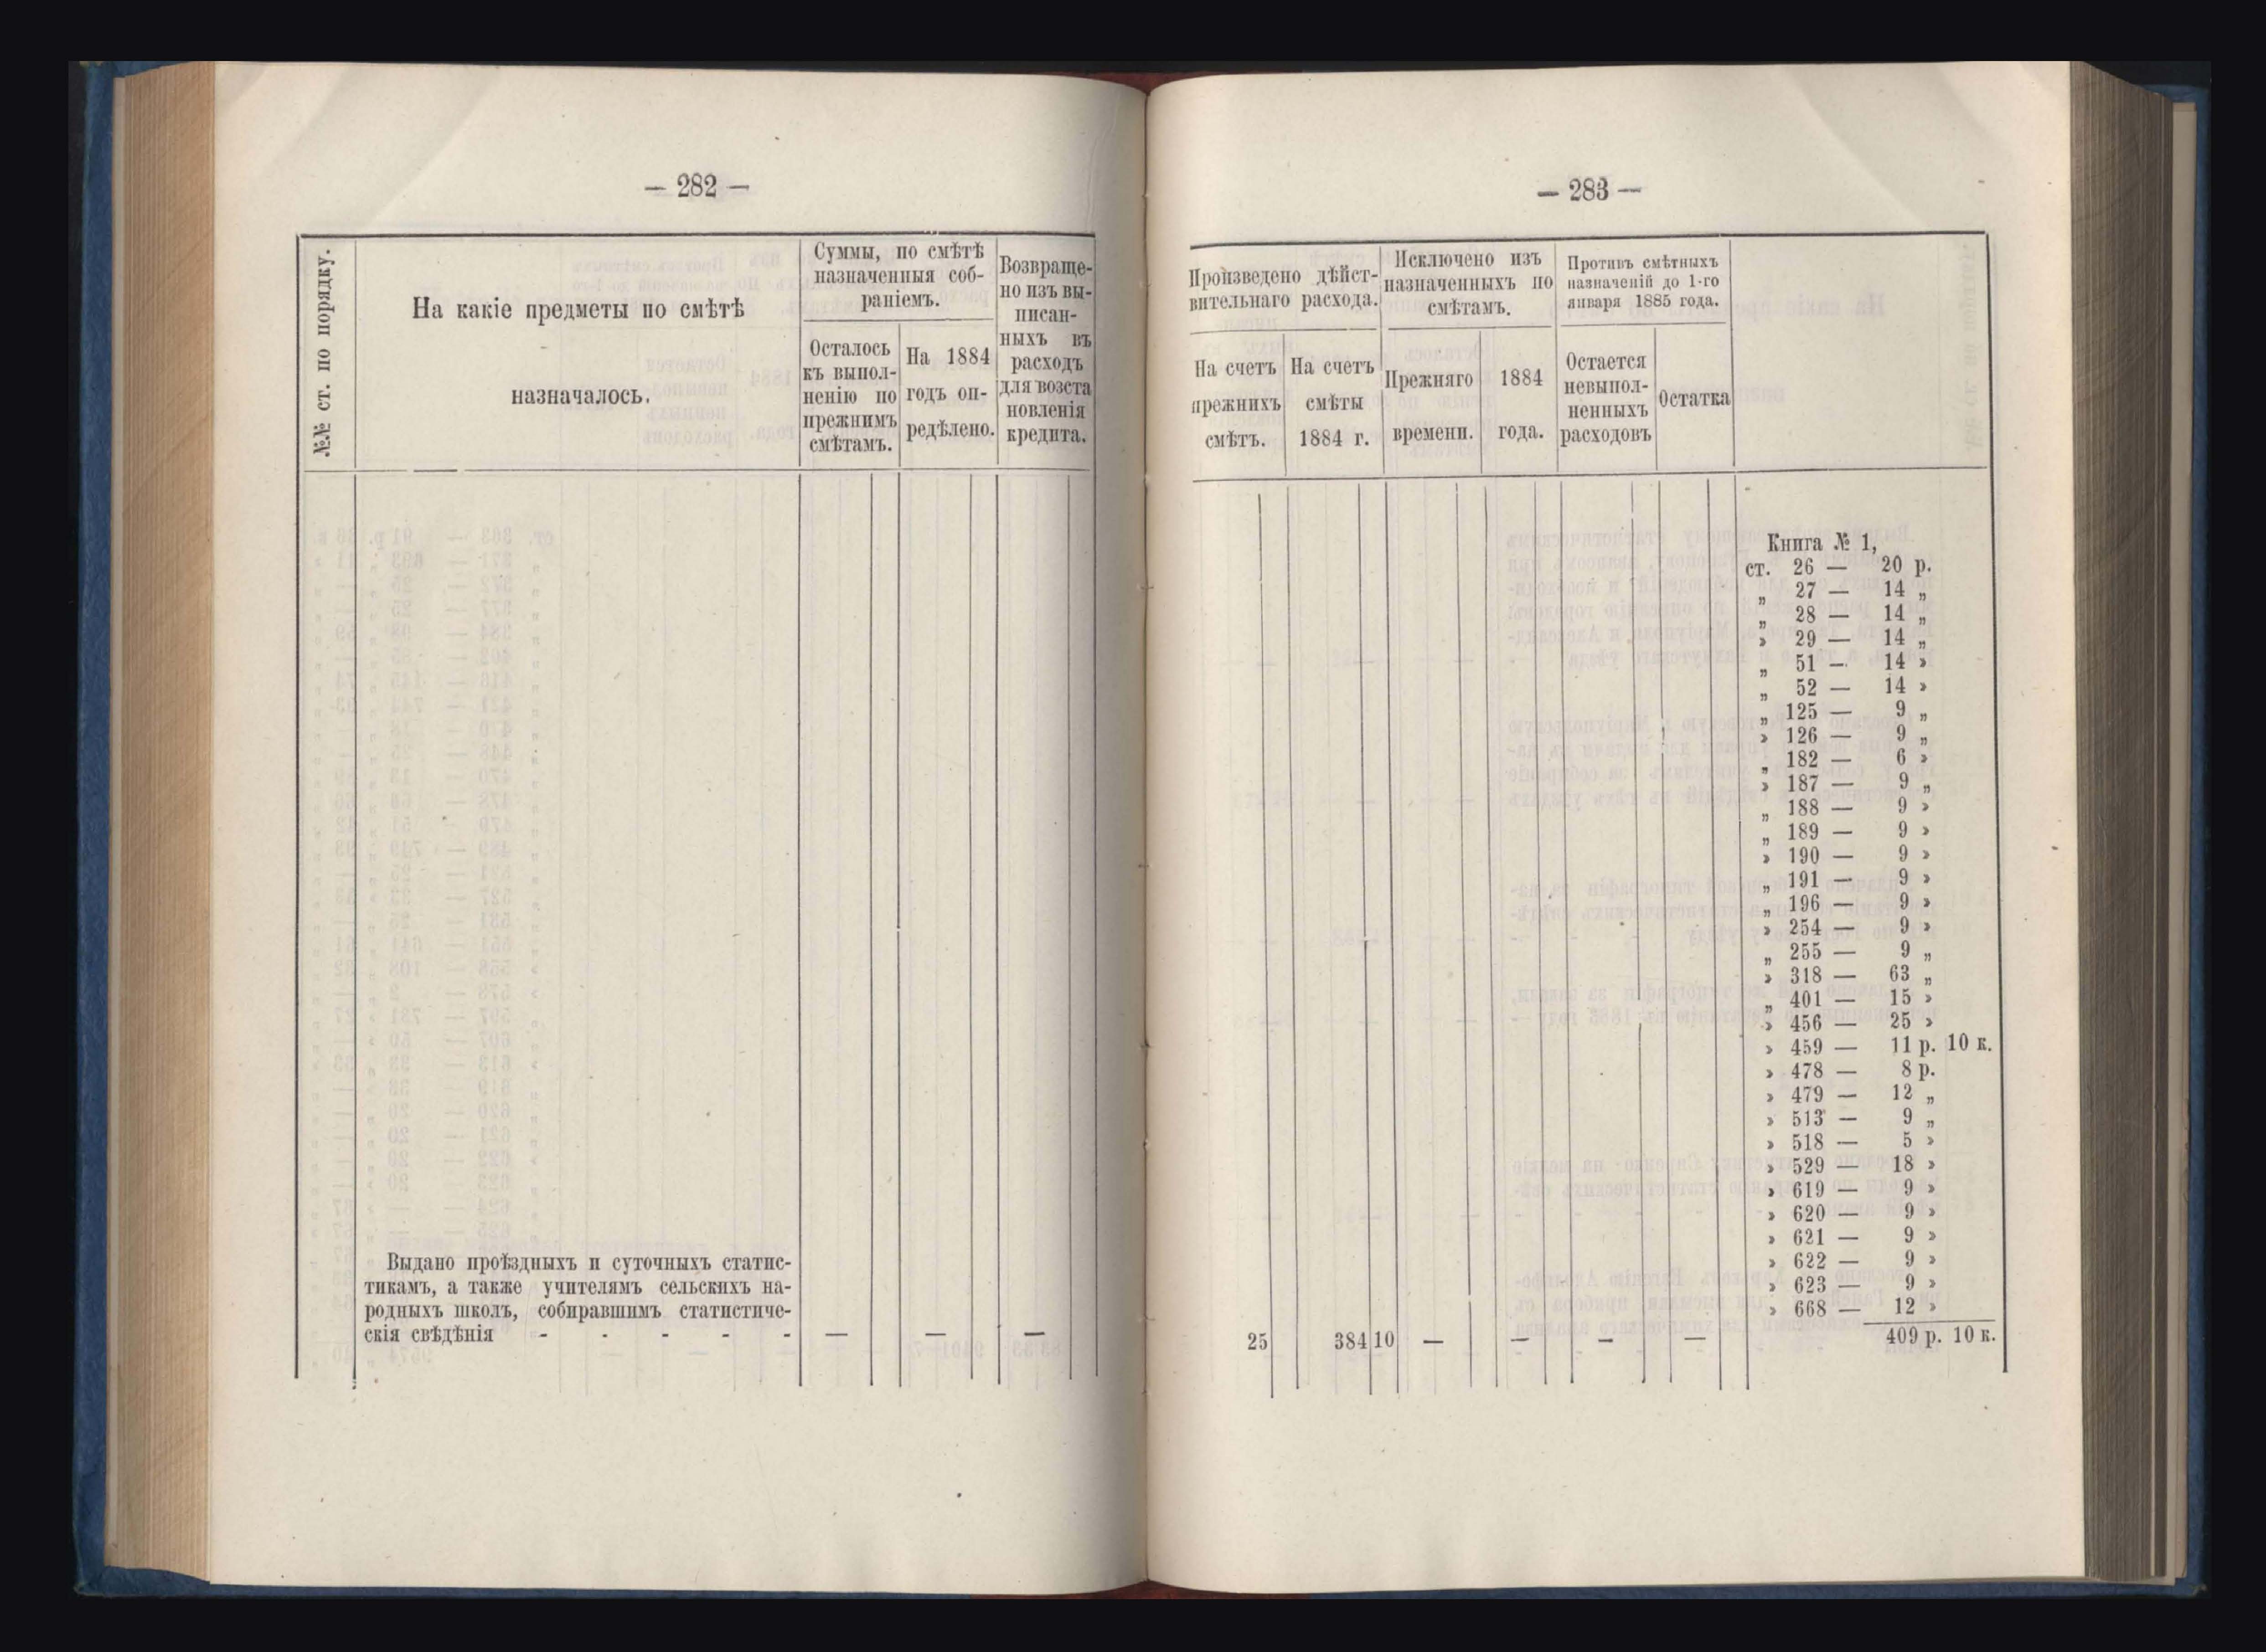 — 282 —
№№ ст. по порядку.
На какіе предметы по смѣтѣ
назначалось.
Суммы, по смѣтѣ
назначенныя соб-
раніемъ.
Осталось
къ выпол-
ненію по
прежнимъ
смѣтамъ.
На 1884
годъ оп-
редѣлено.
Возвраще-
но изъ вы-
писан-
ныхъ въ
расходъ
для возста
новленія
кредита.
Выдано проѣздныхъ и суточныхъ статис-
тикамъ, а также учителямъ сельскихъ на-
родныхъ школъ, собиравшимъ статистиче-
скія свѣдѣнія - - - - - — — —
— 283 —
Произведено дѣйст-
вительнаго расхода.
На счетъ
прежнихъ
смѣтъ.
На счетъ
смѣты
1884 г.
Исключено изъ
назначенныхъ по
смѣтамъ.
Прежняго
времени.
1884
года.
Противъ смѣтныхъ
назначеній до 1-го
января 1885 года.
Остается
невыпол-
ненныхъ
расходовъ
Остатка
Книга № 1,
ст. 26 — 20 р.
„ 27 — 14 „
„ 28 — 14 „
» 29 — 14 „
„ 51 — 14 »
„ 52 — 14 »
„ 125 — 9 „
» 126 — 9 „
„ 182 — 6 »
» 187 — 9 „
„ 188 — 9 »
„ 189 — 9 »
» 190 — 9 »
„ 191 — 9 »
„ 196 — 9 »
» 254 — 9 »
„ 255 — 9 „
» 318 — 63 „
„ 401 — 15 »
» 456 — 25 »
» 459 — 11 р. 10 к.
» 478 — 8 р.
» 479 — 12 „
» 513 — 9 „
» 518 — 5 »
» 529 — 18 »
» 619 — 9 »
» 620 — 9 »
» 621 — 9 »
» 622 — 9 »
» 623 — 9 »
» 668 — 12 »
25 384 10 — — — — 409 р. 10 к.